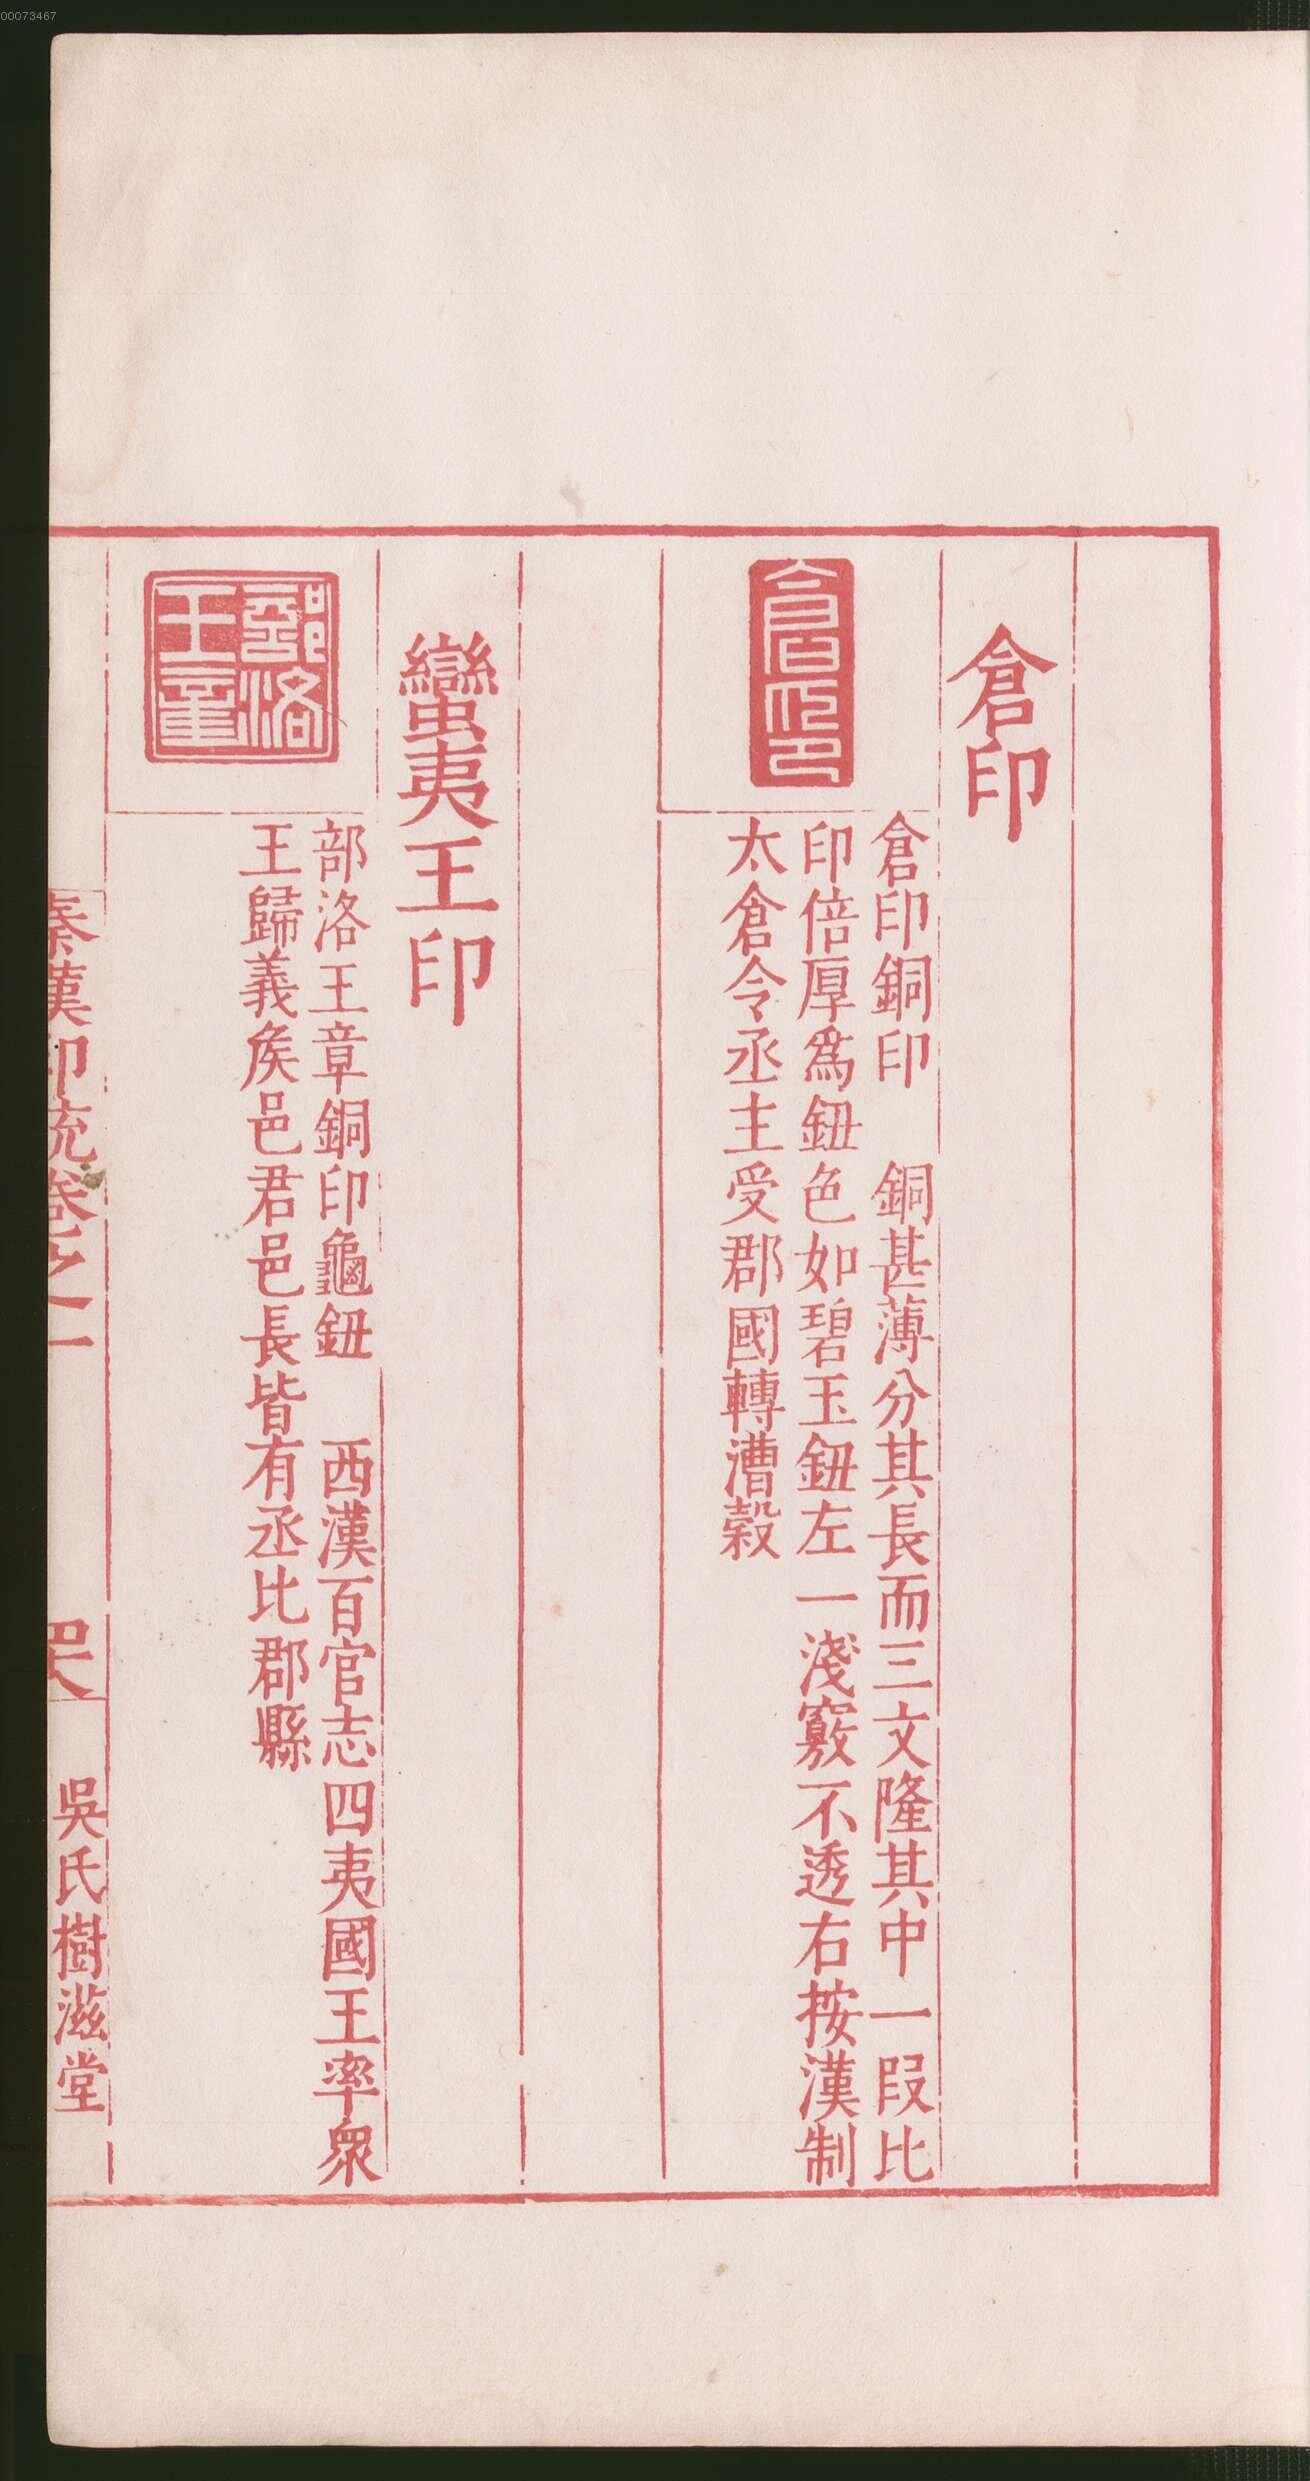 00073467
倉印
倉印
倉印銅印　銅甚薄分其長而三文隆其中一段比
印倍厚爲鈕色如碧玉鈕左一淺竅不透右按漢制
太倉令丞主受郡國轉漕榖
蠻夷王印
部洛王章
部洛王章銅印龜鈕　西漢百官志四夷國王率衆
王歸義矦邑君邑長皆有丞比郡縣
秦漢印統卷之一
吳氏樹滋堂